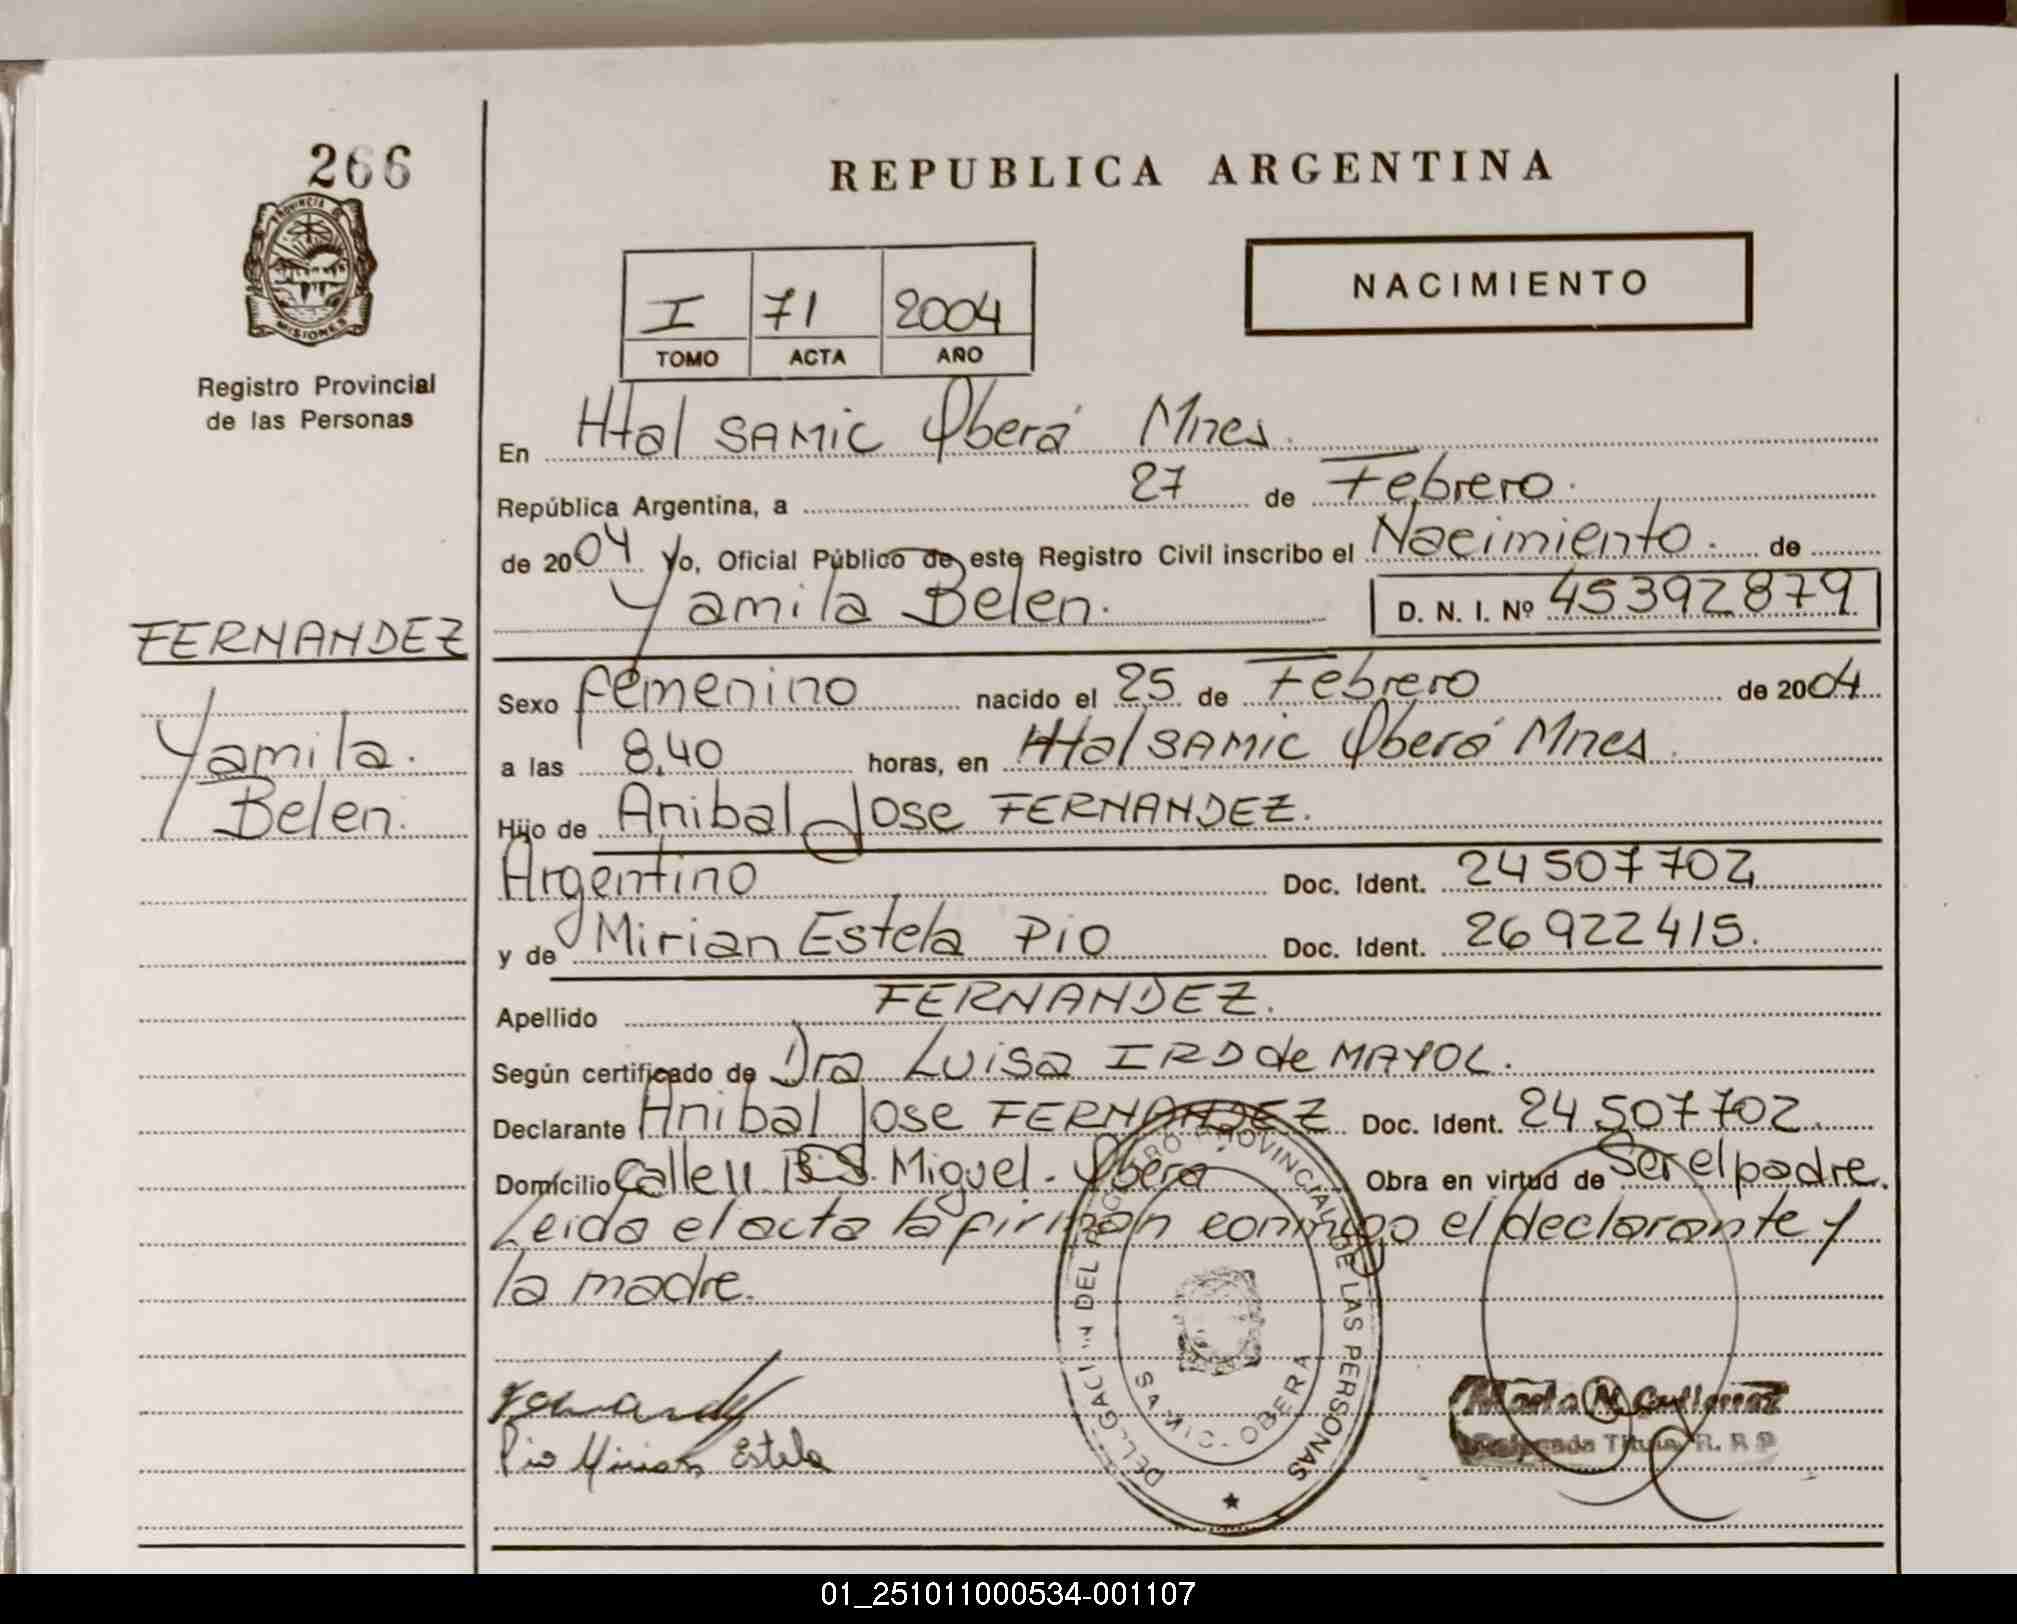 266
PROVINCIA DE
MISIONES
Registro Provincial
de las Personas
FERNANDEZ
Yamila.
Belen.
REPUBLICA ARGENTINA
NACIMIENTO
I 71 2004
TOMO ACTA AÑO
En Htal SAMIC Oberá Mnes.
República Argentina, a 27 de Febrero.
de 2004 Yo, Oficial Público de este Registro Civil inscribo el Nacimiento. de
Yamila Belen. D. N. I. Nº 45392879
Sexo femenino nacido el 25 de Febrero de 2004
a las 8,40 horas, en Htal SAMIC Oberá Mnes.
Hijo de Anibal Jose FERNANDEZ.
Argentino Doc. Ident. 24507702
y de Mirian Estela Pio Doc. Ident. 26922415.
Apellido FERNANDEZ.
Según certificado de Dra Luisa de MAYOL.
Declarante Anibal Jose FERNANDEZ Doc. Ident. 24507702.
Domicilio Calle 11 Miguel. Obera Obra en virtud de Ser el padre.
Leida el acta la firman conmigo el declarante y
la madre.
Pio Mirian Estela
DEL REGISTRO PROVINCIAL DE LAS PERSONAS
OBERA
Maria N. Gutierrez
Delegada Titular R. R. P.
01_251011000534-001107